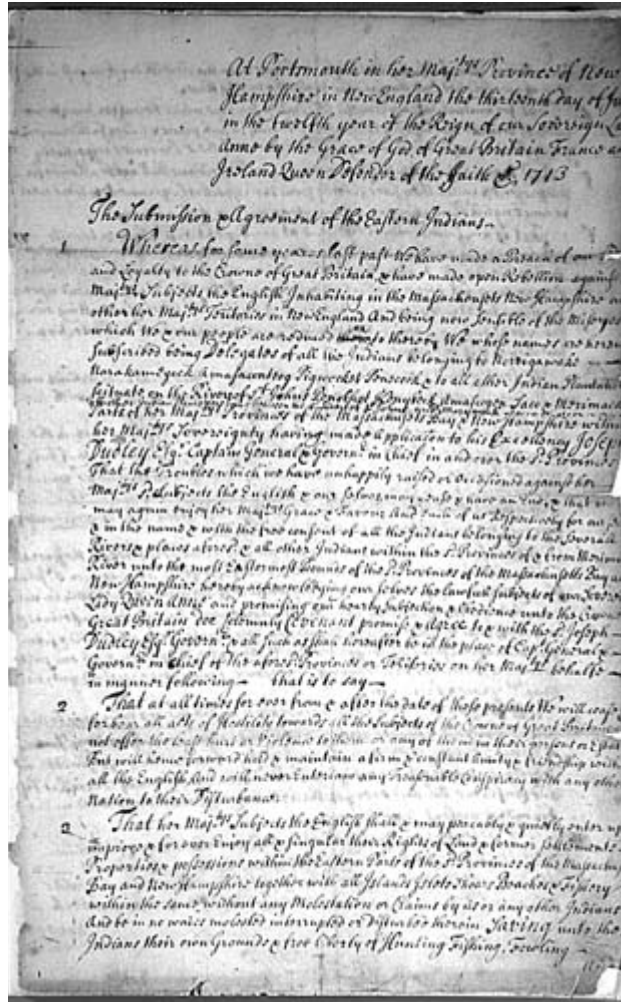 At Portsmouth in her Maj.tys Province of New
Hampshire in New England the thirteenth day of
in the twelfth year of the Reign of our Sovereign
Anne by the Grace of God of Great Britain France
Ireland Queen Defender of the Faith &c 1713
The Submission & Agreement of the Eastern Indians
1 Whereas for some years last past We have made a Breach of our
and Loyalty to the Crowne of Great Britain & have made open Rebellion against
Maj.tys Subjects the English Inhabiting in the Massachusets New Hampshire
other her Maj.tys Teritories in New England And being now sensible of the Miserys
which We & our people are reduced to thereby We whose names are here
subscribed being Delegates of all the Indians belonging to
Narakamegock Amascontoog Pigwocket Penecook & to all other Indian Plantations
situate on the Rivers of St Johns Penobscot Saco & Merimack
Parts of her Maj.tys Provinces of the Massachusets Bay & New Hampshire within
her Maj.tys Sovereignty having made application to his Excellency Joseph
Dudley Esq.r Captain General & Govern.r in Chief in and over the s.d Provinces
That the Troubles which we have unhappily raised or occasioned against her
Maj.tys Subjects the English & our selves may cease & have an End, & that
may again enjoy her Maj.tys Grace & Favour And each of us Respectively for
& in the name & with the free consent of all the Indians belonging to the severall
Rivers & places afores.d & all other Indians within the s.d Provinces of & from Merimack
River unto the most Easternmost bounds of the s.d Provinces of the Massachusetts Bay
New Hampshire hereby acknowledging our selves the lawfull subjects of our
Lady Queen Anne and promising our hearty Subjection & Obedience unto the Crown
Great Britain doe solemnly Covenant promise & Agree to & with the s.d Joseph
Dudley Esq.r Govern.r & all such as shall hereafter be in the place of Cap.t General &
Govern.r in Chief of the afores.d Provinces or Teritories on her Maj.tys behalfe
in manner following that is to say
2 That at all times for ever from & after the date of these presents We will cease
forbear all acts of Hostility towards all the Subjects of the Crowne of Great Britain
not offer the least hurt or Violence to them or any of them in their persons or
But will henceforward hold & maintain a firm & constant Amity & Friendship with
all the English And will never Entertain any Treasonable Conspiracy with any other
Nation to their Disturbance
2 That her Maj.tys Subjects the English shall & may peaceably & quietly enter
improve & for ever Enjoy all & singular their Rights of Land & former settlements
Properties & possessions within the Eastern Parts of the s.d Provinces of the
Bay and New Hampshire together with all Islands Isletts Shoars Beaches & Fishery
within the same without any Molestation or Claims by us or any other Indians
And be in no waies molested interrupted or disturbed therein Saving unto the
Indians their own Grounds & free Liberty of Hunting Fishing, Fowling